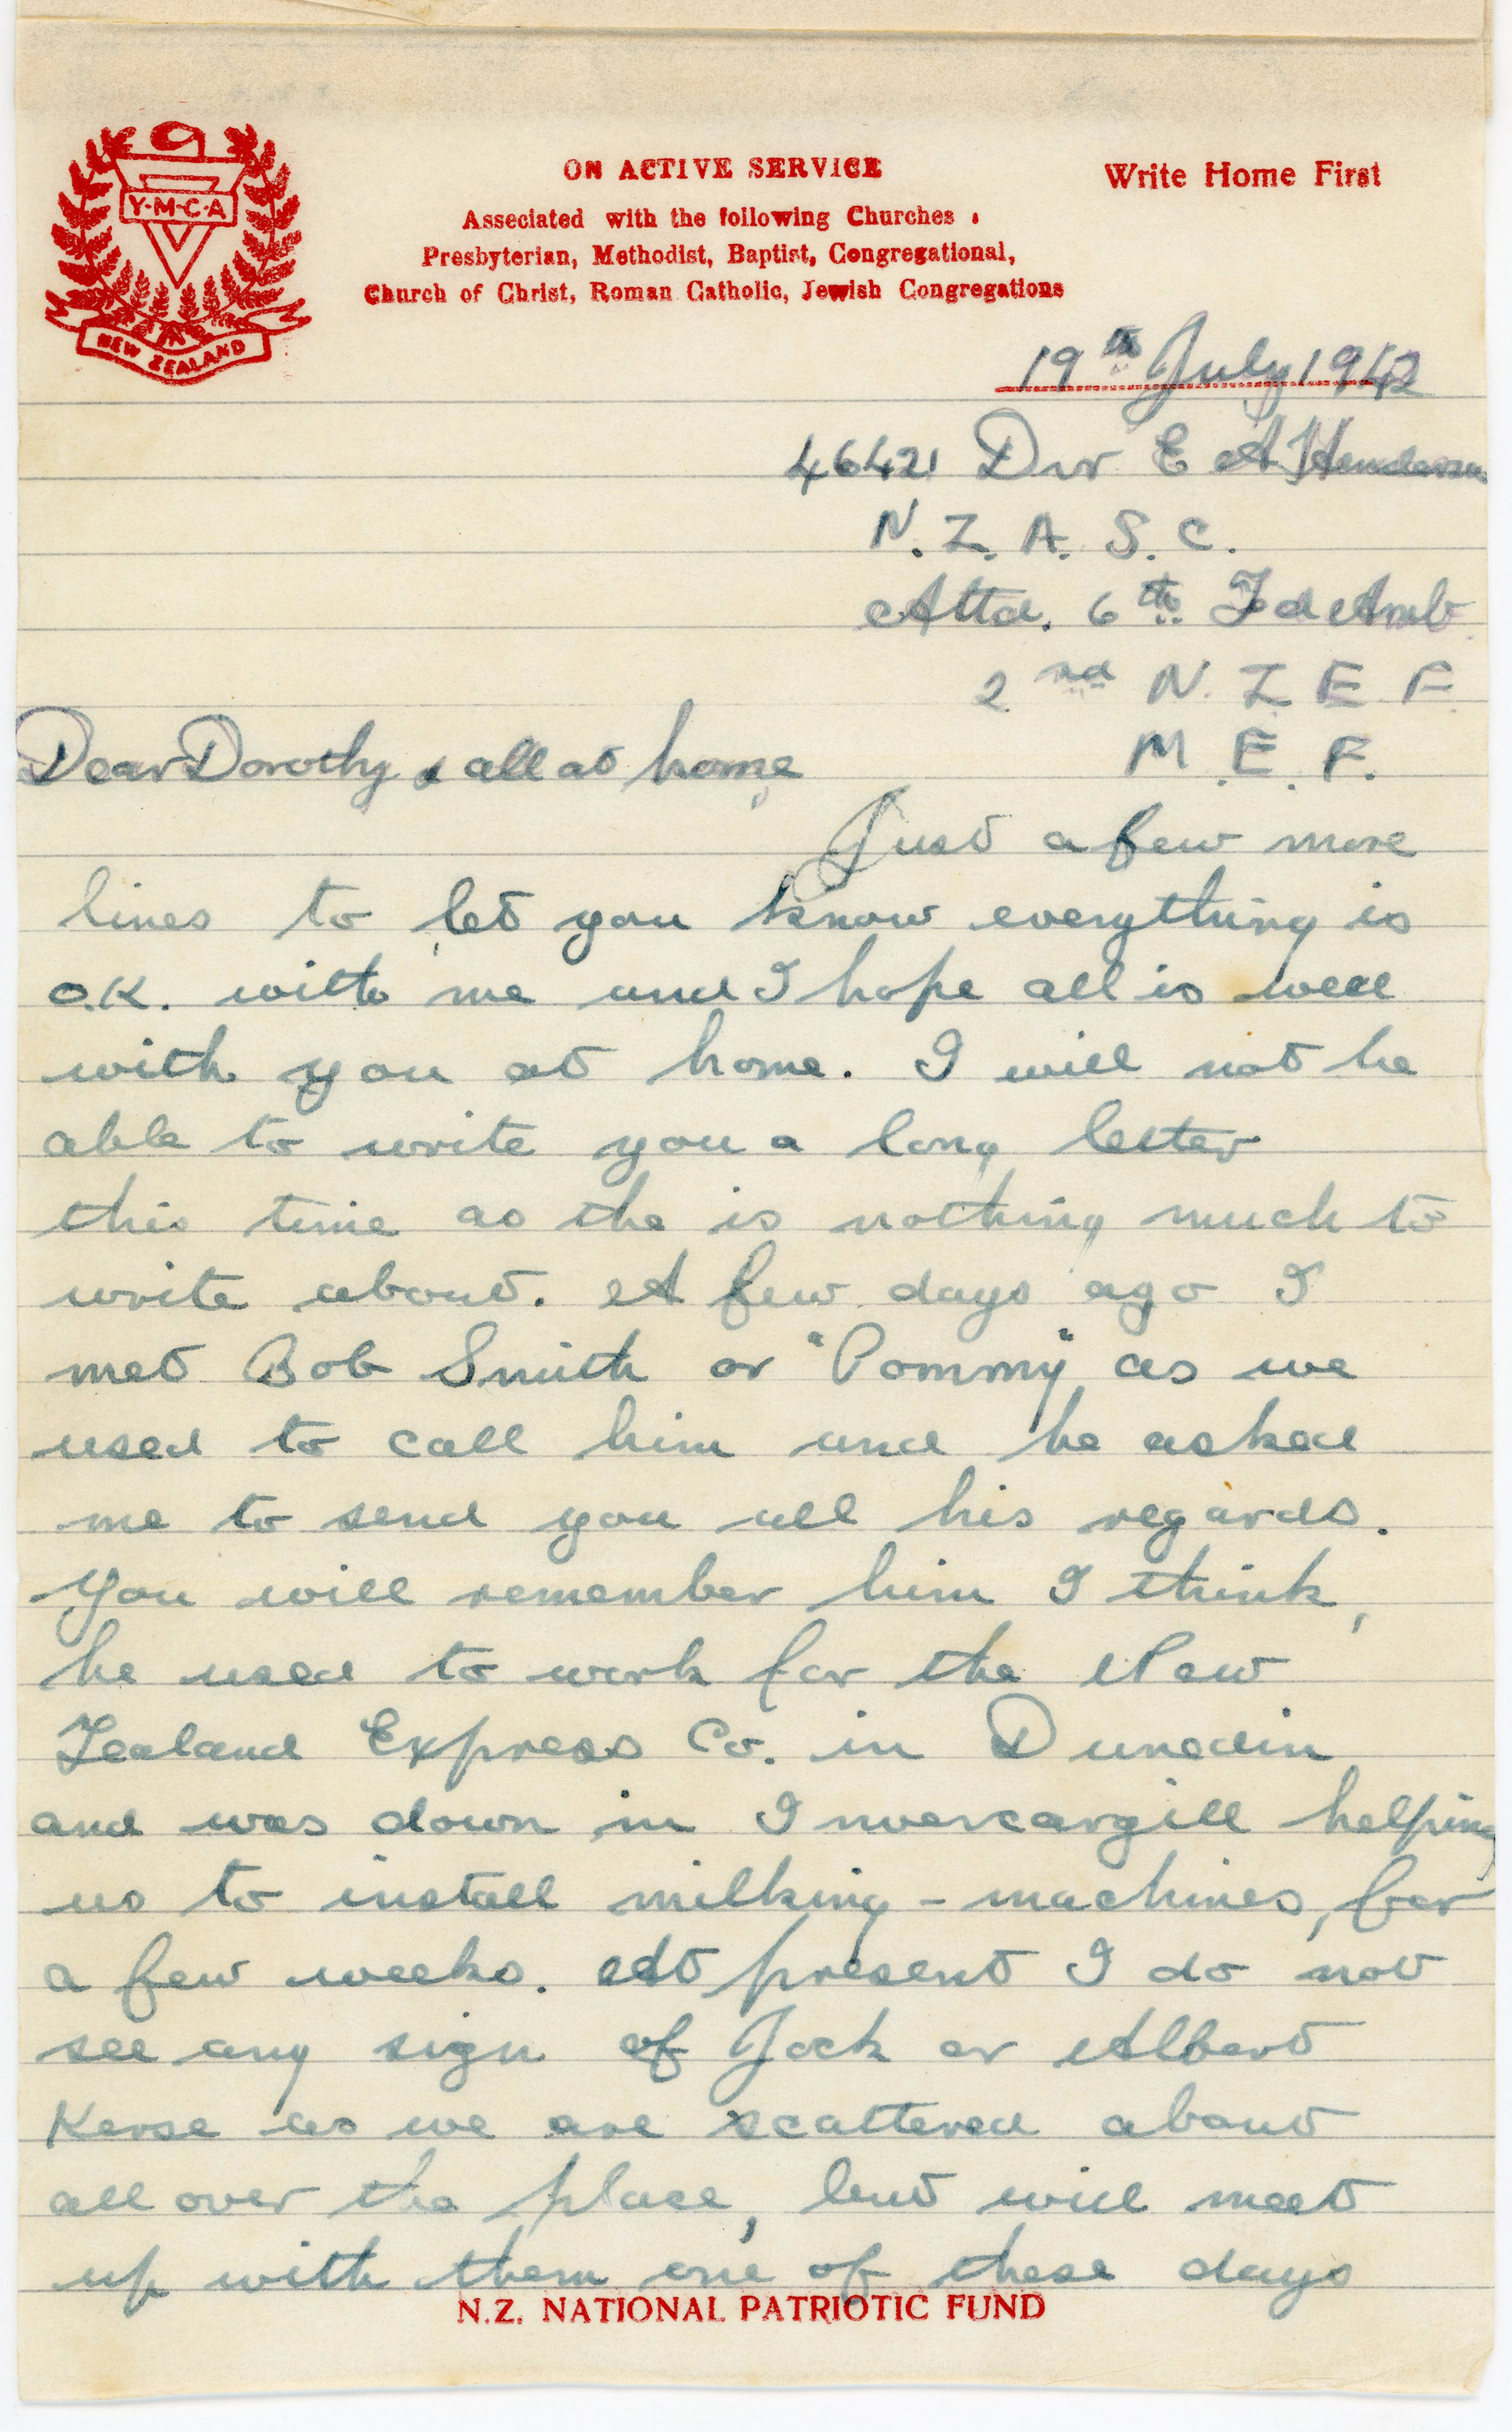 Y·M·C·A
NEW ZEALAND
ON ACTIVE SERVICE
Write Home First
Asseciated with the following Churches :
Presbyterian, Methodist, Baptist, Congregational,
Church of Christ, Roman Catholic, Jewish Congregations
19th July 1942
46421 Dvr E A Henderson
N. Z. A. S. C.
Attd. 6th Fd Amb
2nd N. Z E F.
M. E. F.
Dear Dorothy & all at home,
Just a few more
lines to let you know everything is
O.K. with me and I hope all is well
with you at home. I will not be
able to write you a long letter
this time as the is nothing much to
write about. A few days ago I
met Bob Smith or "Pommy" as we
used to call him and he asked
me to send you all his regards.
You will remember him I think,
he used to work for the New
Zealand Express Co. in Dunedin
and was down in Invercargill helping
us to install milking-machines, for
a few weeks. At present I do not
see any sign of Jock or Albert
Kerse as we are scattered about
all over the place, but will meet
up with them one of these days
N.Z. NATIONAL PATRIOTIC FUND